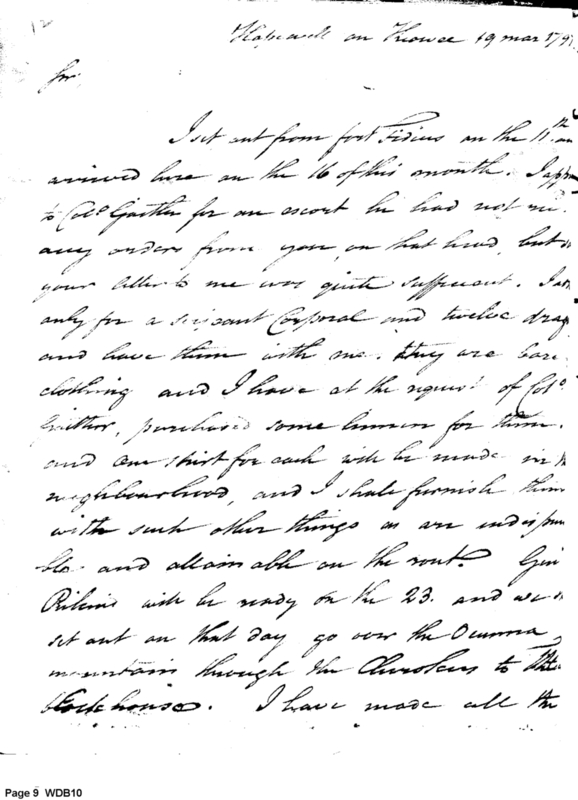 12
Hopewell on Keowee 19 mar 179
Sir
I set out from fort Fidius on the 11th an
arrived here on the 16 of this month. I app
to Colo Gaither for an escort he had not re
any orders from you, on that head, but
your letter to me was quite sufficient. I as
only for a serjeant Corporal and twelve drag
and have them with me. they are bare
clothing and I have at the request of Colo.
Gaither, purchased some linnen for them.
and one shirt for each will be made in
neighbourhood, and I shall furnish them
with such other things as are indispen
ble and attainable on the rout. Gen
Pikens will be ready on the 23. and we
set out on that day go over the Ocunna
mountain through the Cherokees to the
block house. I have made all the
Page 9 WDB10